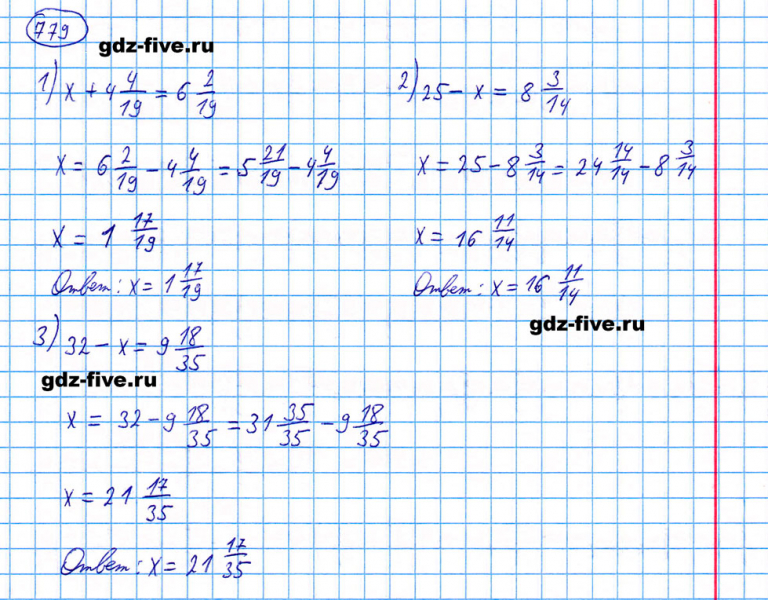 779
gdz-five.ru
1) x + 4 4/19 = 6 2/19
x = 6 2/19 - 4 4/19 = 5 21/19 - 4 4/19
x = 1 17/19
Ответ: x = 1 17/19
2) 25 - x = 8 3/14
x = 25 - 8 3/14 = 24 14/14 - 8 3/14
x = 16 11/14
Ответ: x = 16 11/14
gdz-five.ru
3) 32 - x = 9 18/35
gdz-five.ru
x = 32 - 9 18/35 = 31 35/35 - 9 18/35
x = 21 17/35
Ответ: x = 21 17/35